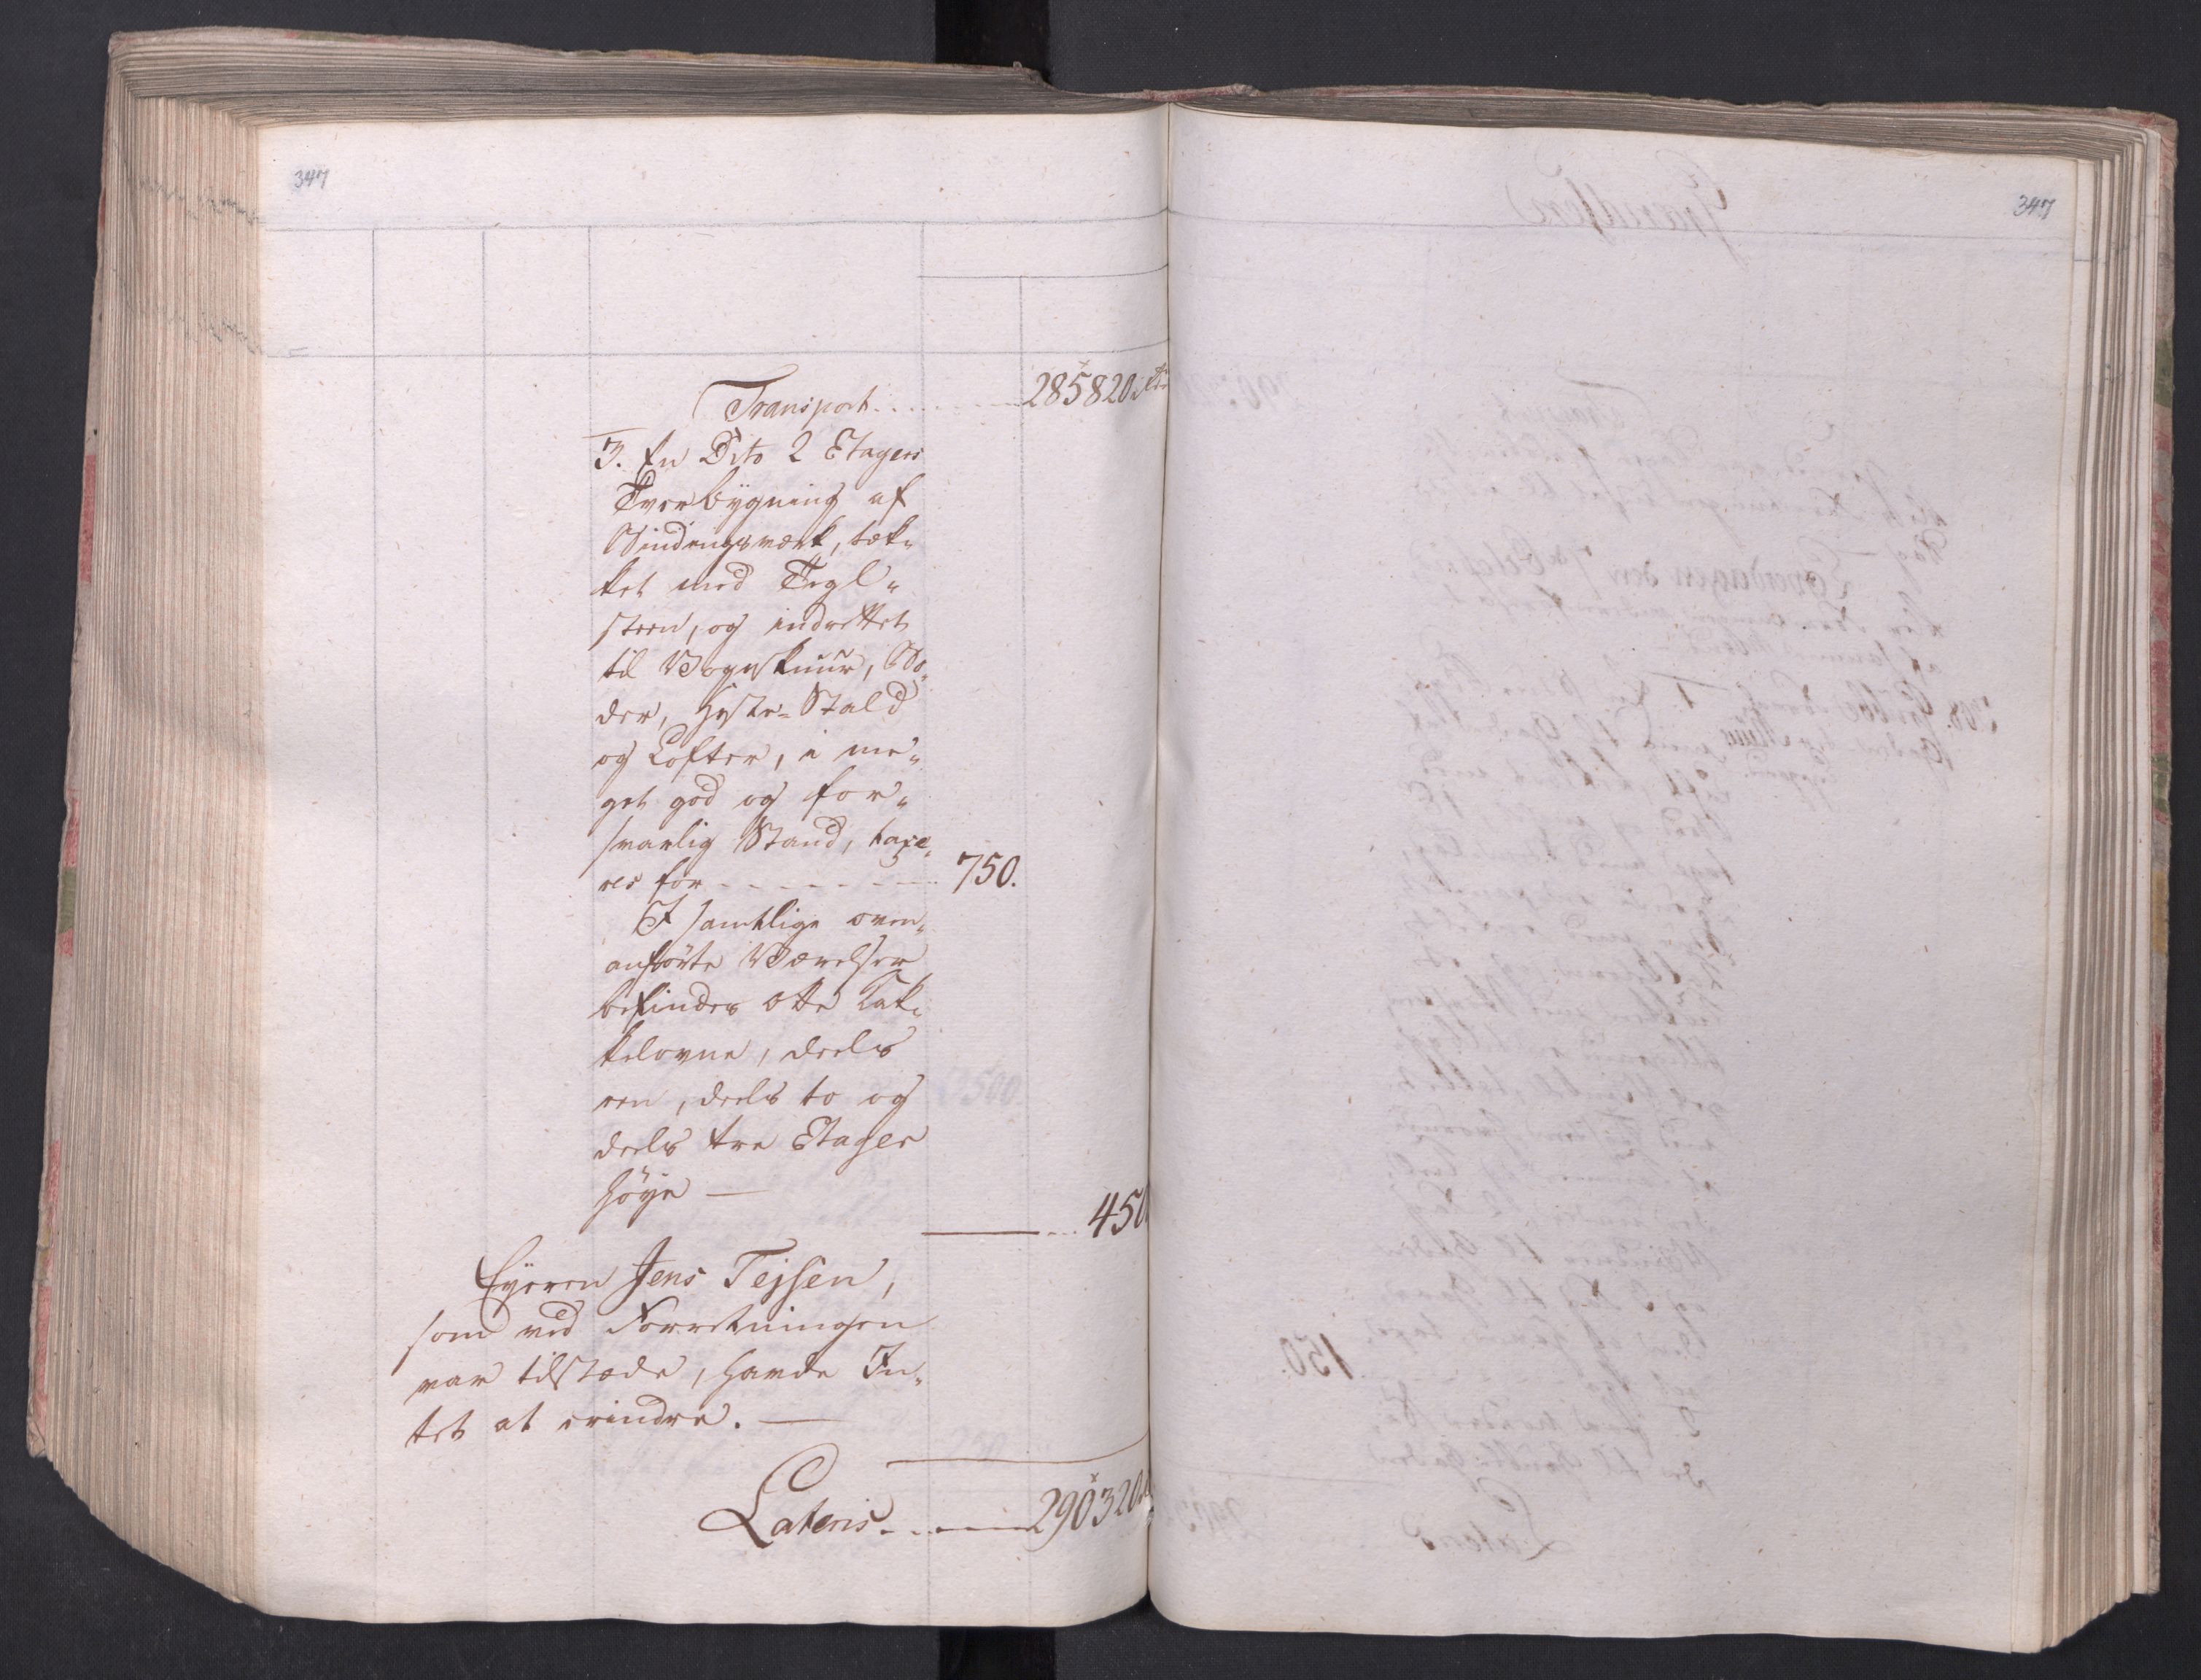 347
Transport . . . . . . . . 285820 Rdr
3. En Dito 2 Etagers
Tverbygning af
Bindingsværk, tæk„
ket med Tegl„
steen, og indrettet
til Vognskuur, Bo„
der, Heste-Stald
og Lofter, i me„
get god og for„
svarlig Stand, taxe„
res for - - - - - - - - 750.
I samtlige oven„
anførte Værelser
befindes otte Kak„
kelovne, deels
een, deels to og
deels tre Etager
høye —
. . . 450
Eyeren Jens Tejsen,
som ved Forretningen
var tilstæde, havde In„
tet at erindre. —
Lateris . . . 290320
347